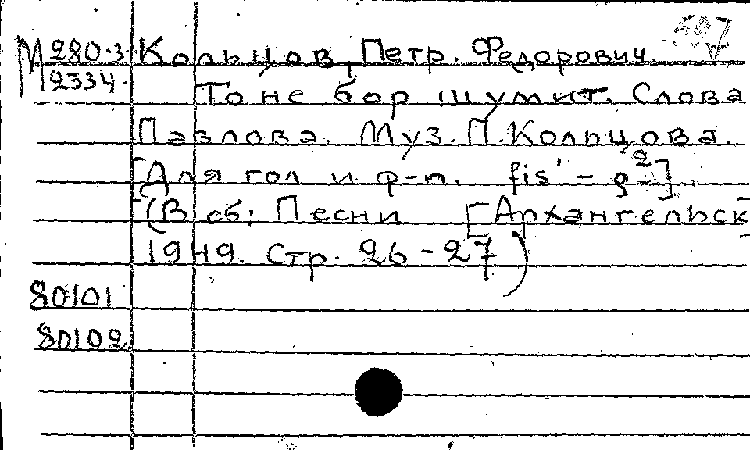 М 280-3 Кольцов, Петр. Федорович. 507
2334. То не бор шумит. Слова
Павлова. Муз. П. Кольцова.
[Для гол и ф-п. fis' - g²].
(В сб: Песни [Архангельск
1949. Стр. 26-27)
80101
80102